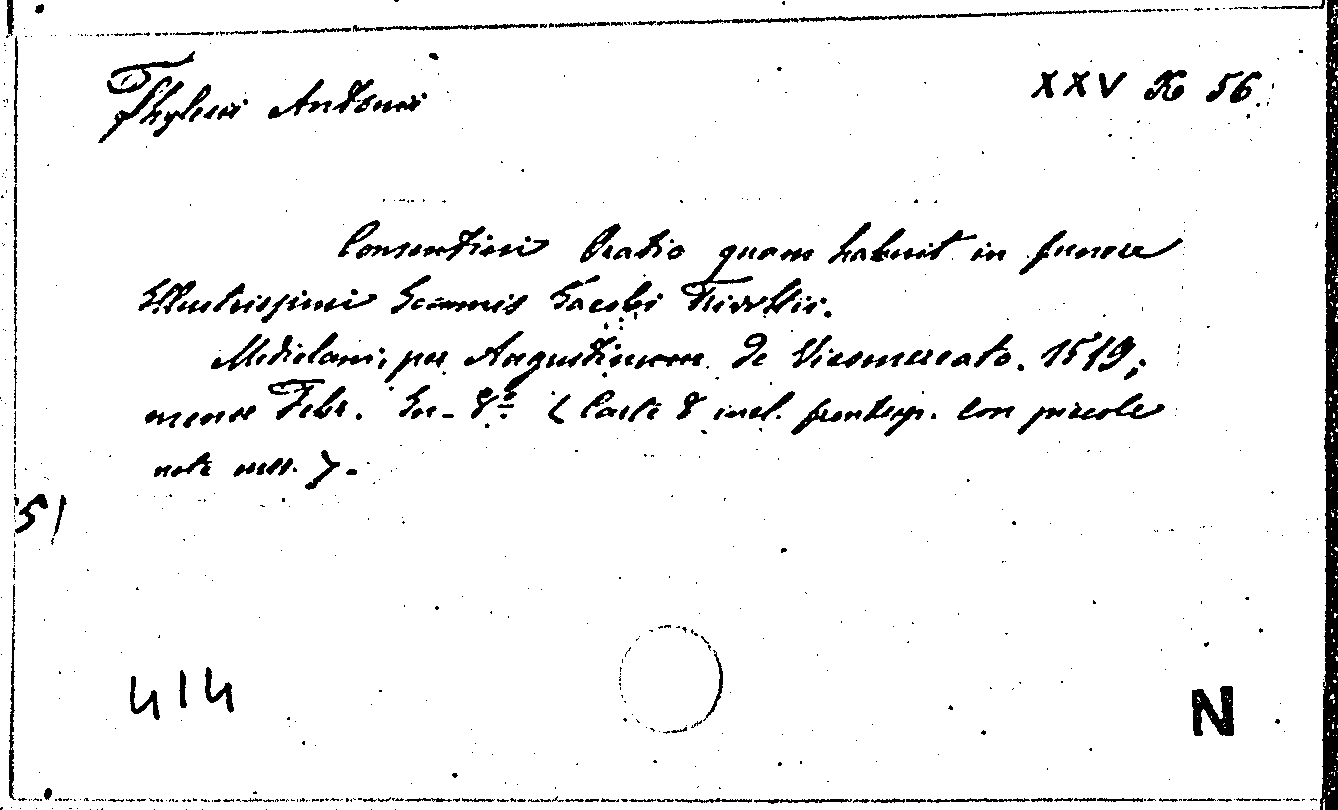 Thylesii Antonii
XXV K 56
Consentini Oratio quam habuit in funere
Illustrissimi Ioannis Iacobi Trivultii.
Mediolani, per Augustinum de Vicomercato. 1519;
mense Febr. In-8º (Carte 8 incl. frontesp. Con piccole
note mss.).
51
414
N